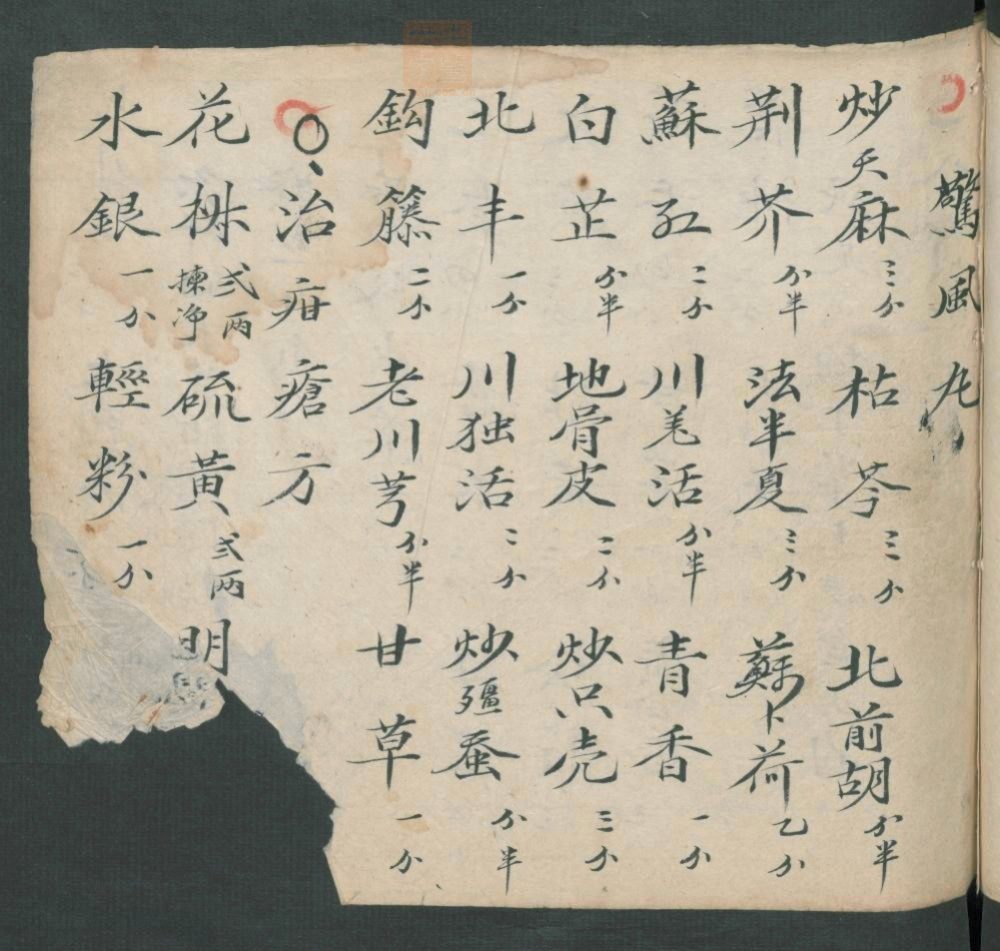 驚風丸
炒天麻三分 枯芩三分 北前胡分半
荆芥分半 法半夏三分 蘇卜荷乙分
蘇紅二分 川羌活分半 青香一分
白芷分半 地骨皮二分 炒只壳三分
北丰一分 川独活二分 炒殭蚕分半
鈎籐二分 老川芎分半 甘草一分
治疳瘡方
花椒弍両揀净 硫黃弍両 明
水銀一分 輕粉一分